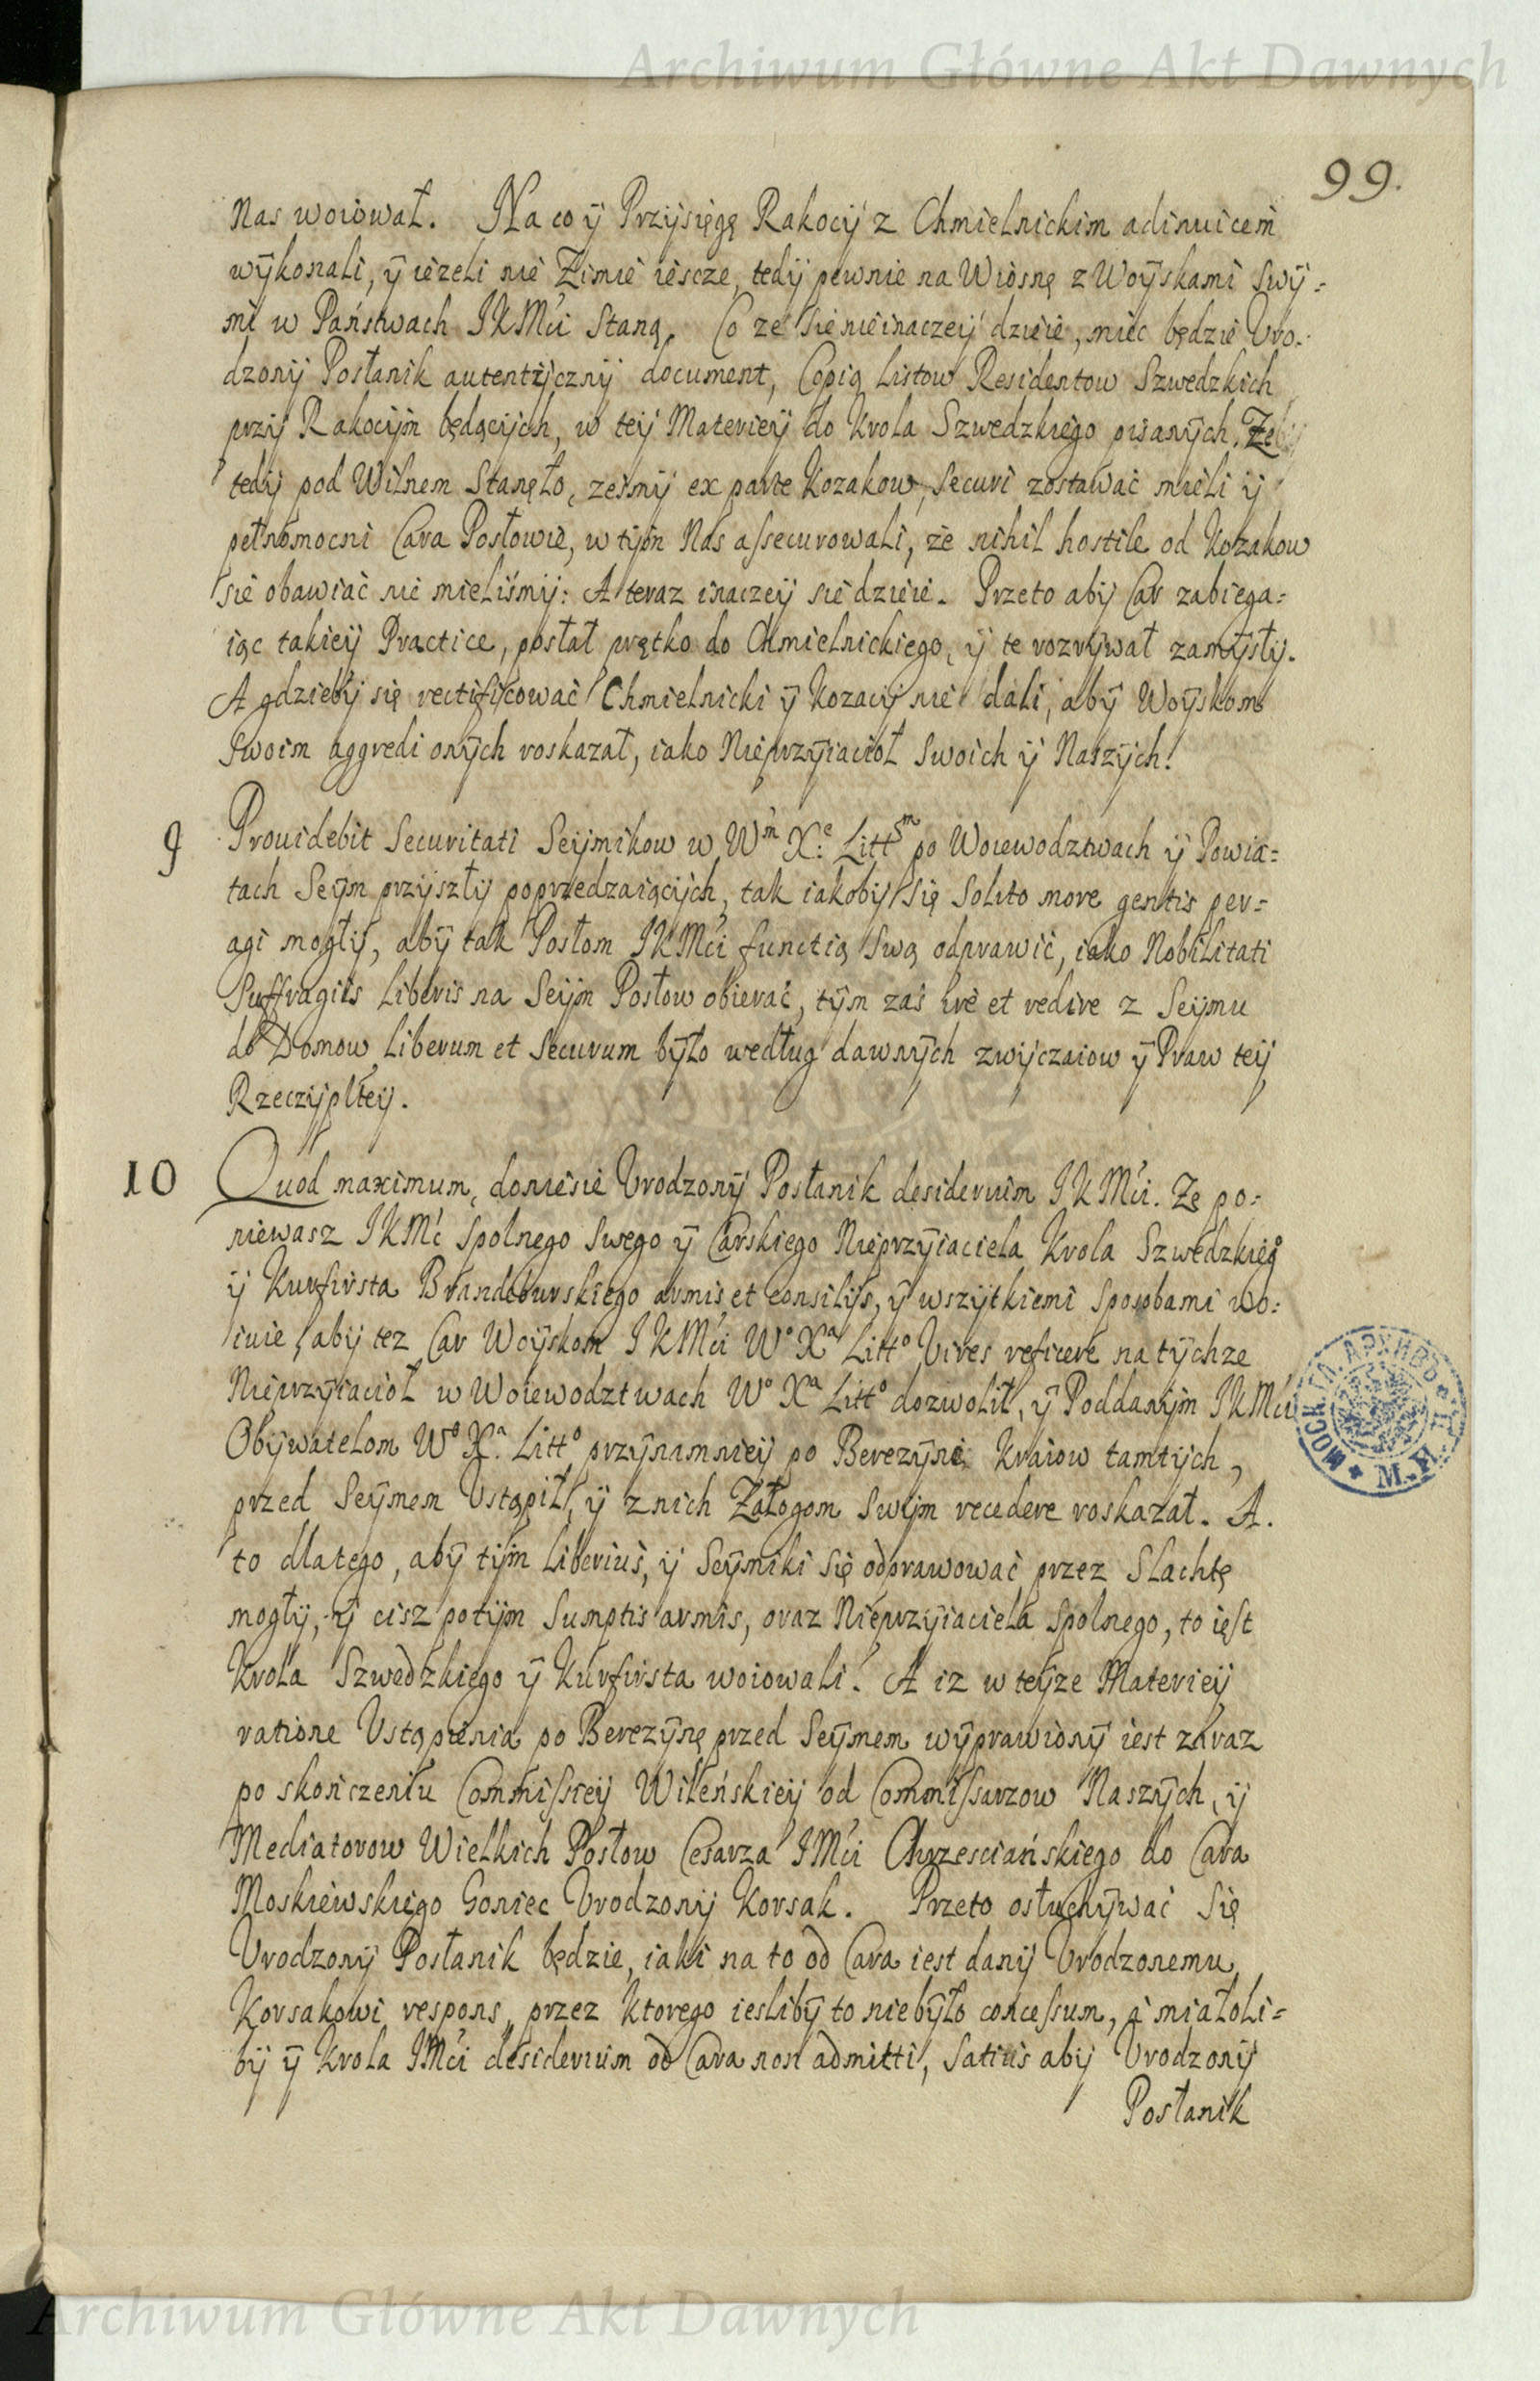 Archiwum Główne Akt Dawnych
99.
Nas woiował. Na co ÿ Przÿsięgę Rakocÿ z Chmielnickim adinuicem
wÿkonali, ÿ ieżeli nie Zimie iescze, tedÿ pewnie na Wiosnę z Woÿskami Swÿ=
mi w Państwach JKMći Staną. Co ze sie nieinaczeÿ dzieie, miec będzie Vro=
dzonÿ Posłanik autentÿcznÿ document, Copią Listow Residentow Szwedzkich
przÿ Rakocÿm będącÿch, w teÿ Materieÿ do Krola Szwedzkiego pisanÿch. Żebÿ
tedÿ pod Wilnem Stanęło, żesmÿ ex parte Kozakow, Securi zostawać mieli ÿ
pełnomocni Cara Posłowie, w tÿm Nas assecurowali, że nihil hostile od Kozakow
sie obawiać nie mieliśmÿ: A teraz inaczeÿ sie dzieie. Przeto abÿ Car zabiega=
iąc takieÿ Practice, posłał prętko do Chmielnickiego, ÿ te rozrÿwał zamÿsłÿ.
A gdziebÿ się rectificować Chmielnicki ÿ Kozacÿ nie dali, abÿ Woÿskom
Swoim aggredi onÿch roskazał, iako Nieprzÿiacioł Swoich ÿ Naszÿch.
9 Prouidebit Securitati Seÿmikow w Wᵐ X:ᵉ Littᵐ po Woiewodztwach ÿ Powia=
tach Seÿm przÿszłÿ poprzedzaiącÿch, tak iakobÿ się Solito more gentis per=
agi mogłÿ, abÿ tak Posłom JKMći functią Swą odprawić, iako Nobilitati
Suffragiis Liberis na Seÿm Posłow obierać, tÿm zaś ire et redire z Seÿmu
do Domow Liberum et Securum bÿło według dawnÿch zwÿczaiow ÿ Praw teÿ
Rzeczÿplteÿ.
10 Quod maximum, doniesie Vrodzonÿ Posłanik desiderium JKMći. Że po=
niewasz JKMć Spolnego Swego ÿ Carskiego Nieprzÿiaciela Krola Szwedzkieg°
ÿ Kurfirsta Brandeburskiego armis et consilÿs, ÿ wszÿtkiemi Sposobami wo=
iuie, abÿ tez Car Woÿskom JKMći W° Xᵃ Litt° Vires reficere na tÿchze
Nieprzÿiacioł w Woiewodztwach W° Xᵃ Litt° dozwolił, ÿ Poddanÿm JKMći
Obÿwatelom W° Xᵃ. Litt° przÿnamnieÿ po Berezÿnę Kraiow tamtÿch,
przed Seÿmem Vstąpił, ÿ z nich Załogom Swÿm recedere roskazał. A.
to dlatego, abÿ tÿm Liberius, ÿ Seÿmiki się odprawować przez Slachtę
mogłÿ, ÿ cisz potÿm Sumptis armis, oraz Nieprzÿiaciela Spolnego, to iest
Krola Szwedzkiego ÿ Kurfirsta woiowali. A iz w teÿze Materieÿ
ratione Vstąpienia po Berezÿnę przed Seÿmem wÿprawionÿ iest zaraz
po skończeniu Commissieÿ Wileńskieÿ od Commissarzow Naszÿch, ÿ
Mediatorow Wielkich Posłow Cesarza JMći Chrzesciańskiego do Cara
Moskiewskiego Goniec Vrodzonÿ Korsak. Przeto osłuchÿwać Się
Vrodzonÿ Posłanik będzie, iaki na to od Cara iest danÿ Vrodzonemu
Korsakowi respons, przez ktorego ieslibÿ to niebÿło concessum, a miałoli=
bÿ ÿ Krola JMći desiderium od Cara non admitti, Satius abÿ Vrodzonÿ
Posłanik
МОСК. ГЛ. АРХИВЪ
М.И.Д.
Archiwum Główne Akt Dawnych